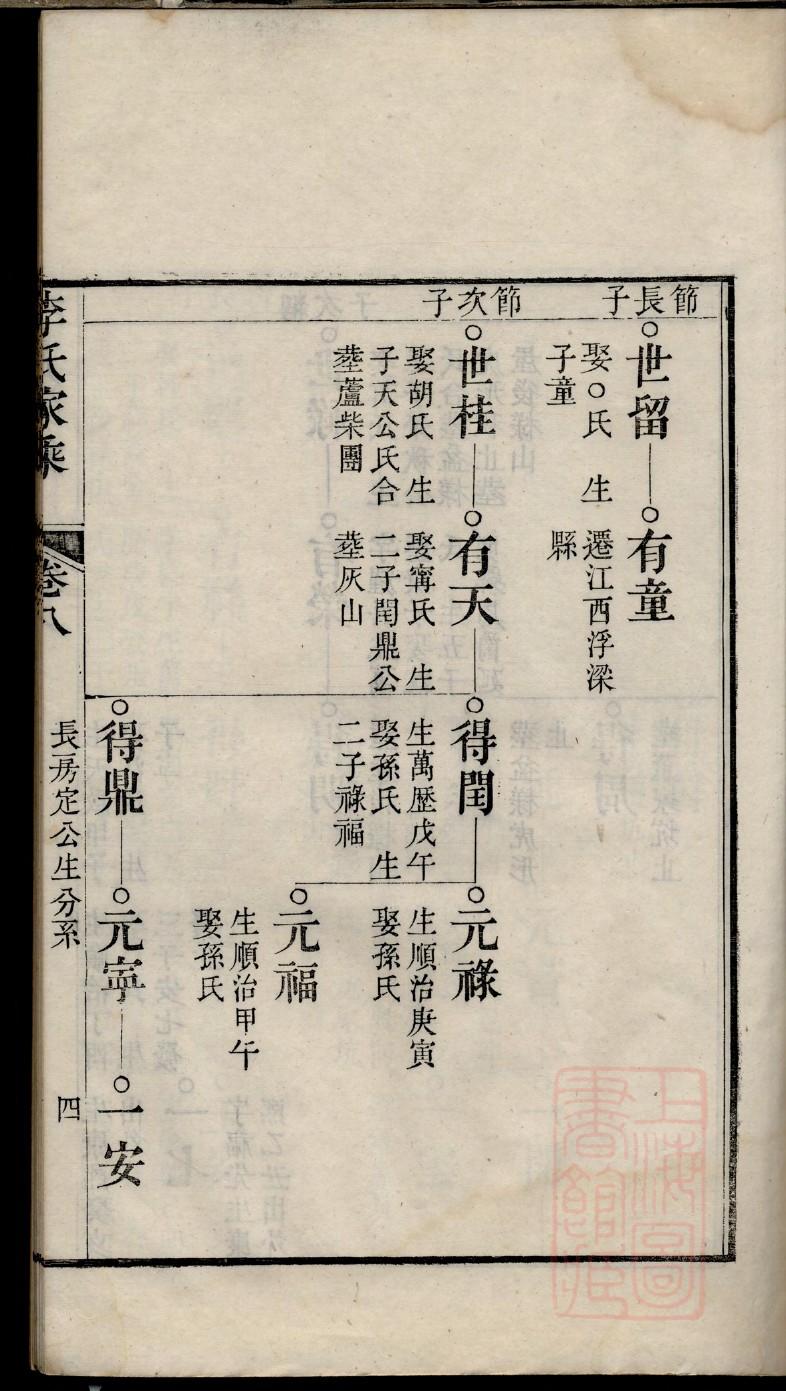 節長子
世留
娶○氏　生
子童
有童
遷江西浮梁
縣
節次子
世桂
娶胡氏　生
子天公氏合
塟蘆柴團
有天
娶甯氏　生
二子閏鼎公
塟灰山
得閏
生萬歴戊午
娶孫氏　生
二子祿福
元祿
生順治庚寅
娶孫氏
元福
生順治甲午
娶孫氏
得鼎
元寧
一安
李氏家乘
卷八
長房定公生分系
四
上海圖書館藏